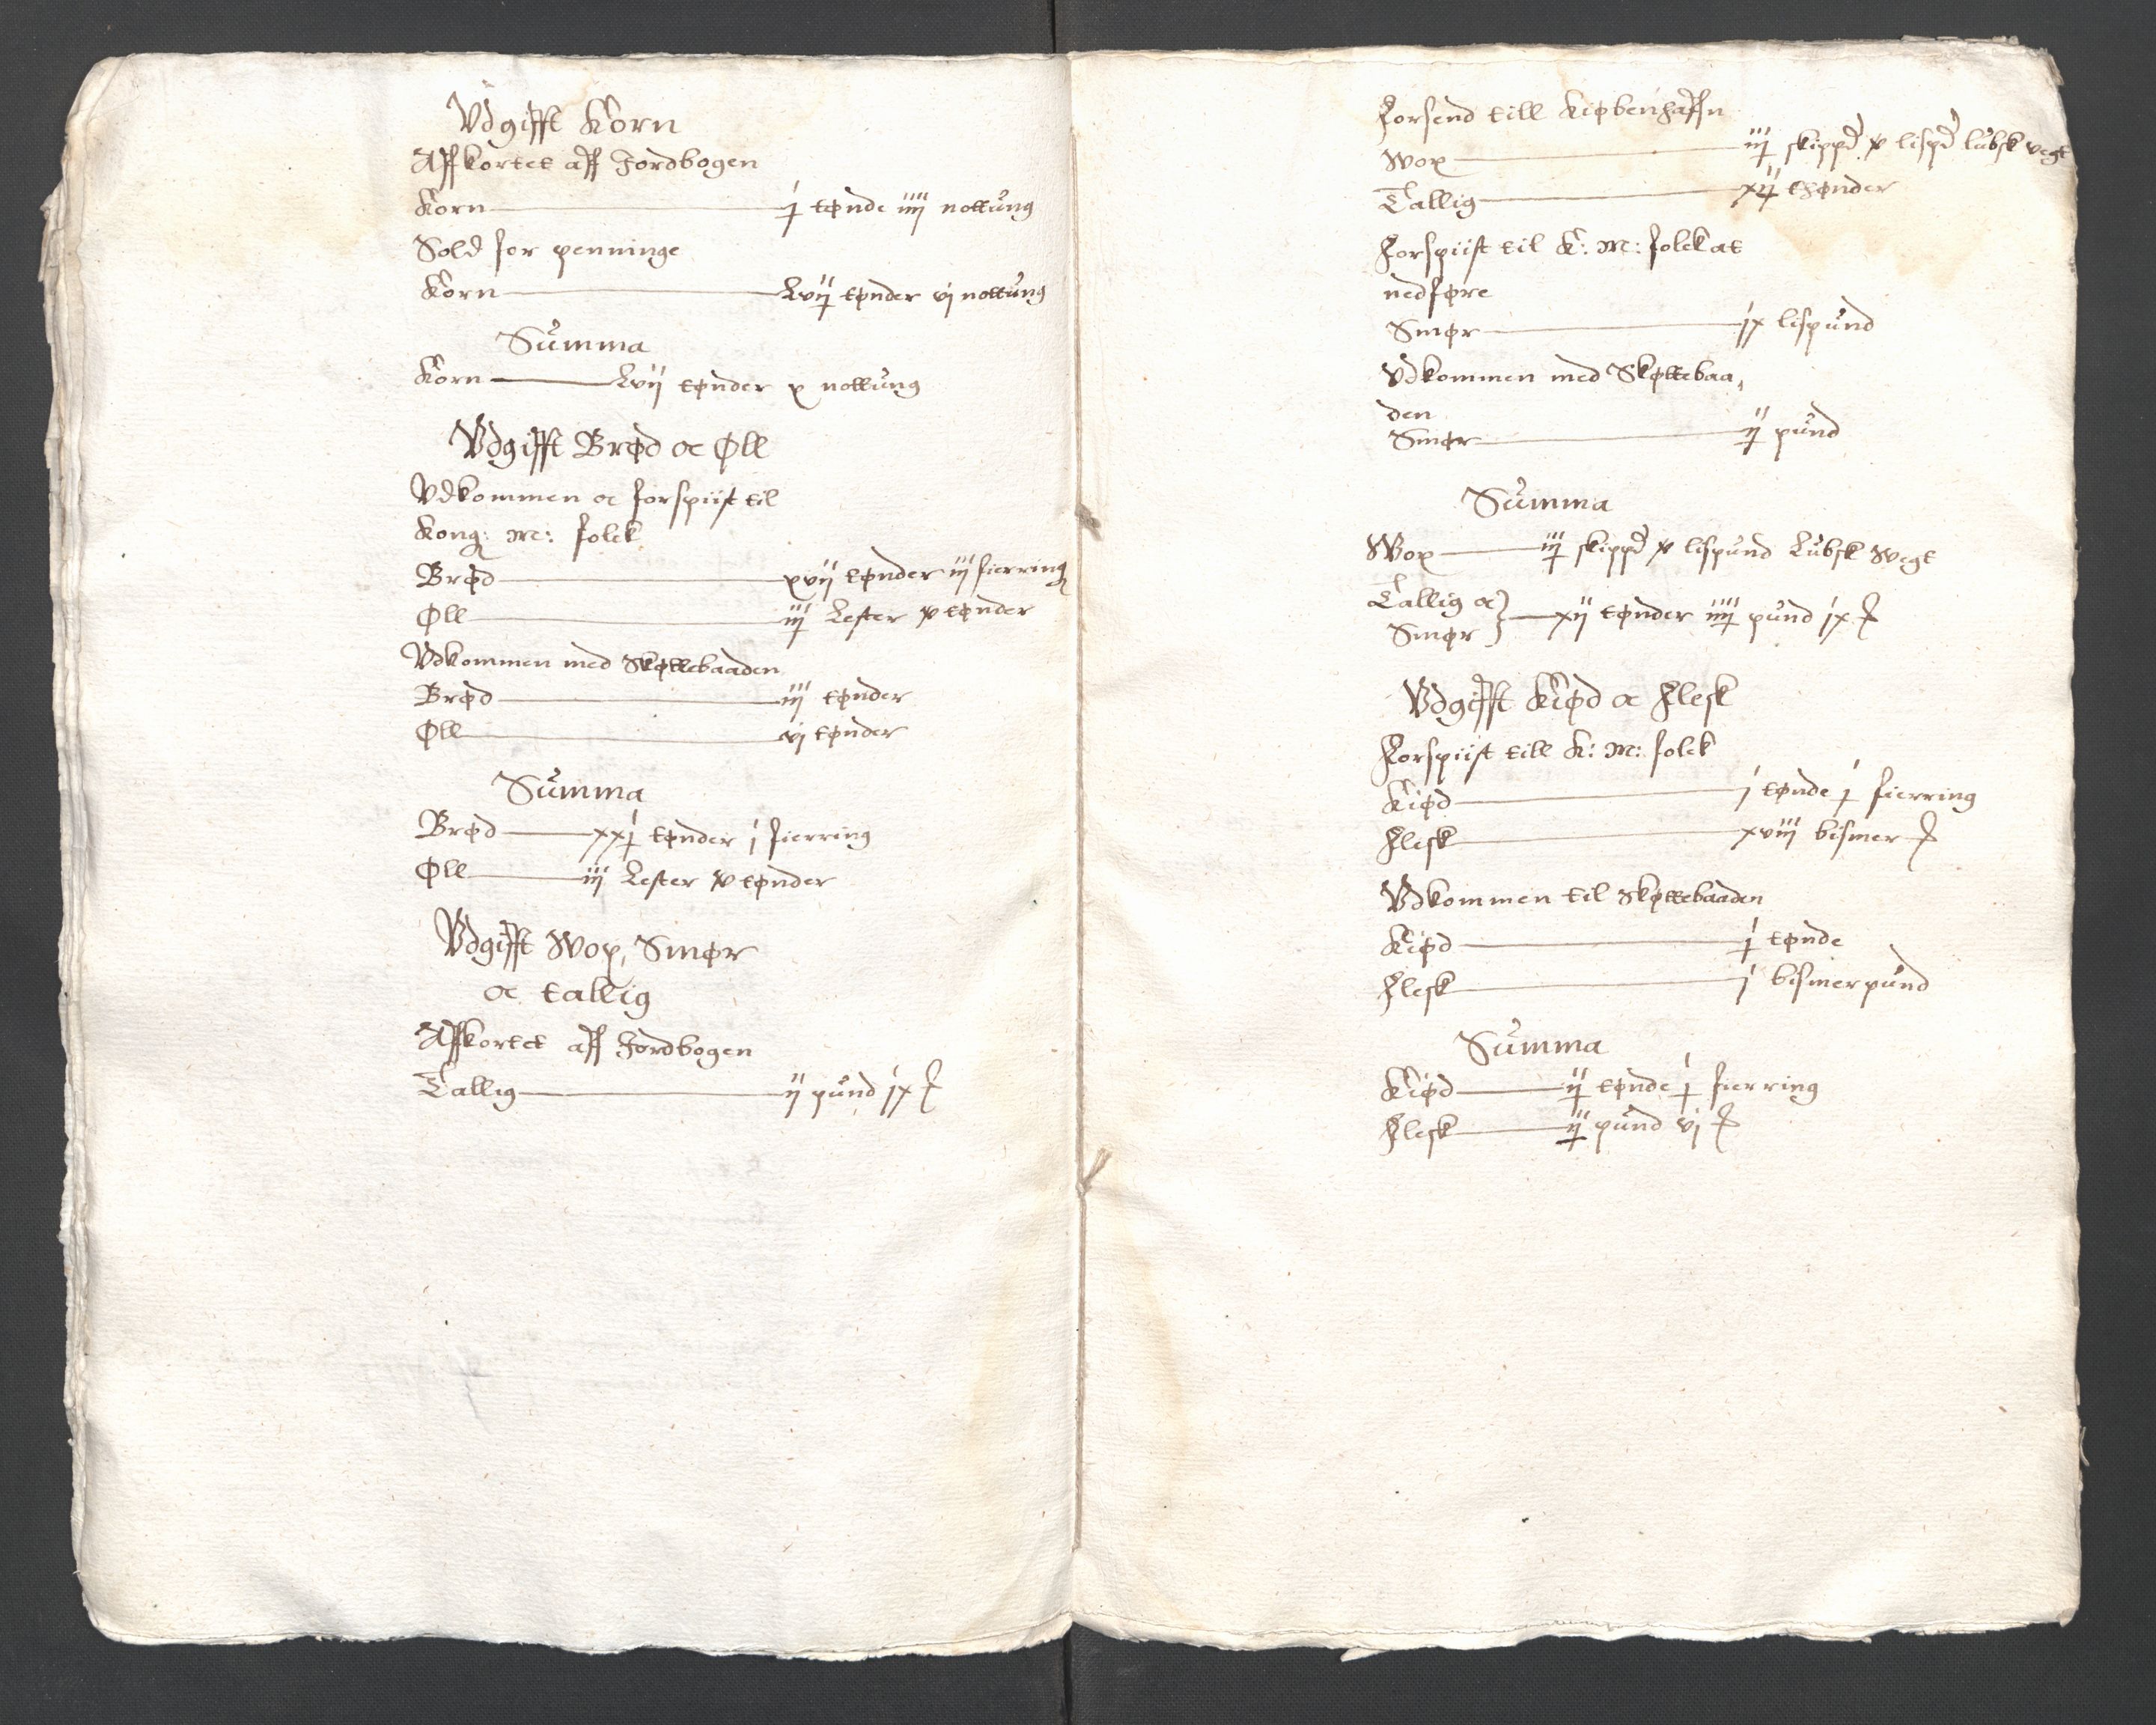 Vdgifft Korn
Affkortet aff Jordbogen
Korn j tønde iiij nottung
Sold for penninge
Korn Lvij tønder vj nottung
Summa
Korn Lvij tønder x nottung
Vdgifft Brød oc Øll
Vdkommen oc forspiist til
Kong: M: folck
Brød xvij tønder iij fierring
Øll iij Lester x tønder
Vdkommen med Skøttebaaden
Brød iij tønder
Øll vj tønder
Summa
Brød xxj tønder j fierring
Øll iij Lester x tønder
Vdgifft Wox, Smør
oc tallig
Affkortet aff Jordbogen
Tallig ij pund ix
Forsend till Kiøbenhaffn
Wox iij skippd x lispd lubsk vegt
Tallig xij thønder
Forspiist til K: M: folck at
nedføre
Smør ix lispund
Vdkommen med Skøttebaa,
den
Smør ij pund
Summa
Wox iij skippd x lispund Lubsk Wegt
Tallig oc
Smør xij tønder iiij pund ix
Vdgifft Kiød oc Flesk
Forspiist till K: M: folck
Kiød j tønde j fierring
Flesk xviij bismer
Vdkommen til Skøttebaaden
Kiød j tønde
Flesk j bismerpund
Summa
Kiød ij tønde j fierring
Flesk ij pund vj